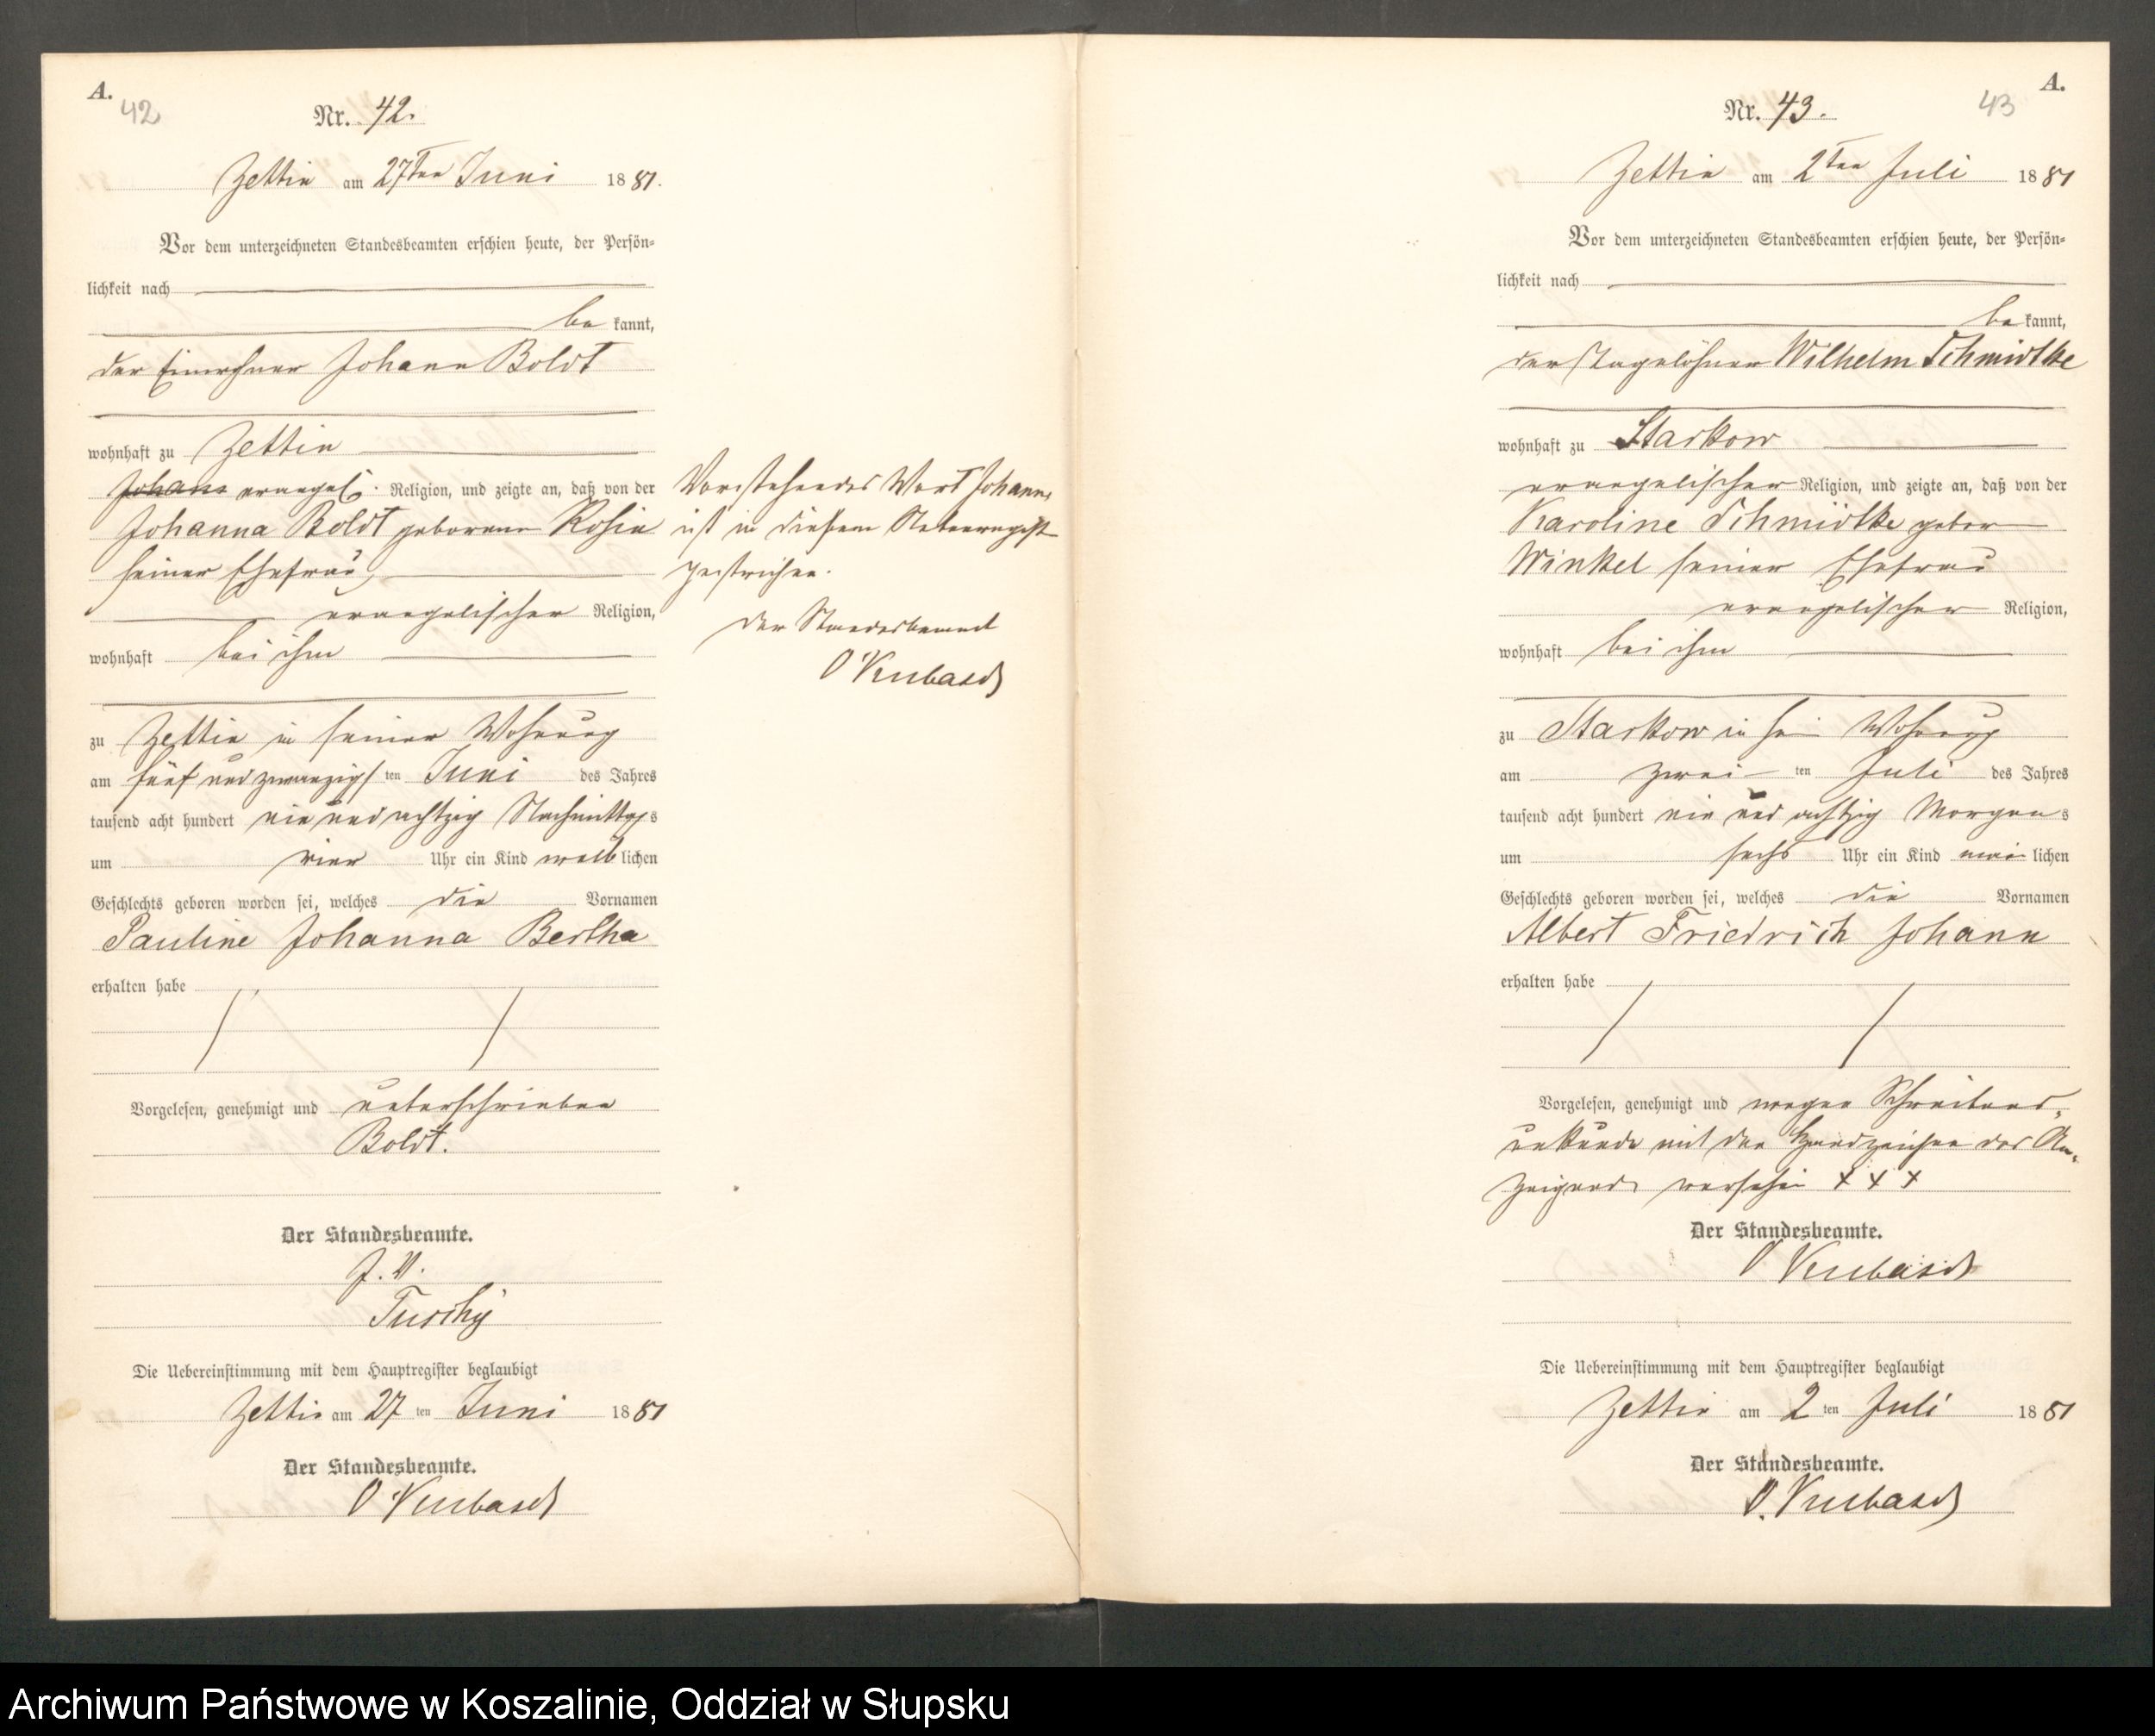 A.
42
Nr. 42.
Zettin am 27ten Juni 1881.
Vor dem unterzeichneten Standesbeamten erschien heute, der Persön=
lichkeit nach
be kannt,
der Einwohner Johann Boldt
wohnhaft zu Zettin
Johann evangel. Religion, und zeigte an, daß von der
Johanna Boldt geborene Rosin
seiner Ehefrau,
evangelischer Religion,
wohnhaft bei ihm
zu Zettin in seiner Wohnung
am fünf und zwanzigsten Juni des Jahres
tausend acht hundert ein und achtzig Nachmittags
um vier Uhr ein Kind weiblichen
Geschlechts geboren worden sei, welches die Vornamen
Pauline Johanna Bertha
erhalten habe
Vorgelesen, genehmigt und unterschrieben
Boldt.
Der Standesbeamte.
J. V.
Die Uebereinstimmung mit dem Hauptregister beglaubigt
Zettin am 27 ten Juni 1881
Der Standesbeamte.
Vorstehendes Wort Johann,
ist in diesem Nebenregist
gestrichen.
Der Standesbeamte
A.
43
Nr. 43.
Zettin am 2ten Juli 1881
Vor dem unterzeichneten Standesbeamten erschien heute, der Persön=
lichkeit nach
be kannt,
der Tagelöhner Wilhelm Schmidtke
wohnhaft zu Starkow
evangelischer Religion, und zeigte an, daß von der
Karoline Schmidtke gebor
Winkel seiner Ehefrau
evangelischer Religion,
wohnhaft bei ihm
zu Starkow in sein Wohnung
am zwei ten Juli des Jahres
tausend acht hundert ein und achtzig Morgens
um sechs Uhr ein Kind männlichen
Geschlechts geboren worden sei, welches die Vornamen
Albert Friedrich Johann
erhalten habe
Vorgelesen, genehmigt und wegen Schreibens=
unkunde mit den Handzeichen des An=
zeigend versehen + + +
Der Standesbeamte.
Die Uebereinstimmung mit dem Hauptregister beglaubigt
Zettin am 2 ten Juli 1881
Der Standesbeamte.
Archiwum Państwowe w Koszalinie, Oddział w Słupsku